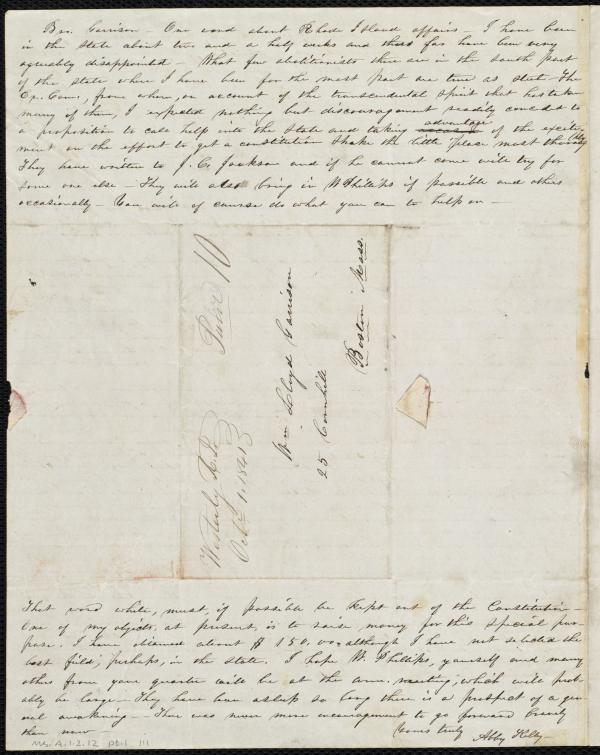 Bro. Garrison - One word about Rhode Island affairs - I have been
in the state about two and a half weeks and thus far have been very
agreeably disappointed - What few abolitionists there are in the south part
of the state where I have been for the most part are true as steel - The
Ex. Com., from whom, on account of the transcendental spirit that has taken
many of them, I expected nothing but discouragement readily conceded to
a proposition to call help into the State and taking advantage of the excite-
ment on the effort to get a constitution shake the little place most thoroughly
They have written to J. C. Jackson and if he cannot come will try for
some one else - They will also bring in W Phillips if possible and others
occasionally - You will of course do what you can to help on -
Paid 10
Wm Lloyd Garrison
25 Cornhill
Boston Mass.
Westerly R.I.
Oct. 1. 1841
That word white, must, if possible be kept out of the Constitution -
One of my objects, at present, is to raise money for this special pur-
pose. I have obtained about $150,00, although I have not selected the
best field, perhaps, in the state. I hope W. Phillips, yourself and many
others from your quarter will be at the ann. meeting, which will prob-
ably be large - They have been asleep so long there is a prospect of a gen-
eral awakening - There was never more encouragement to go forward bravely
than now -
Yours truly Abby Kelley -
Ms. A. 1. 2. 12 pt. 1 111